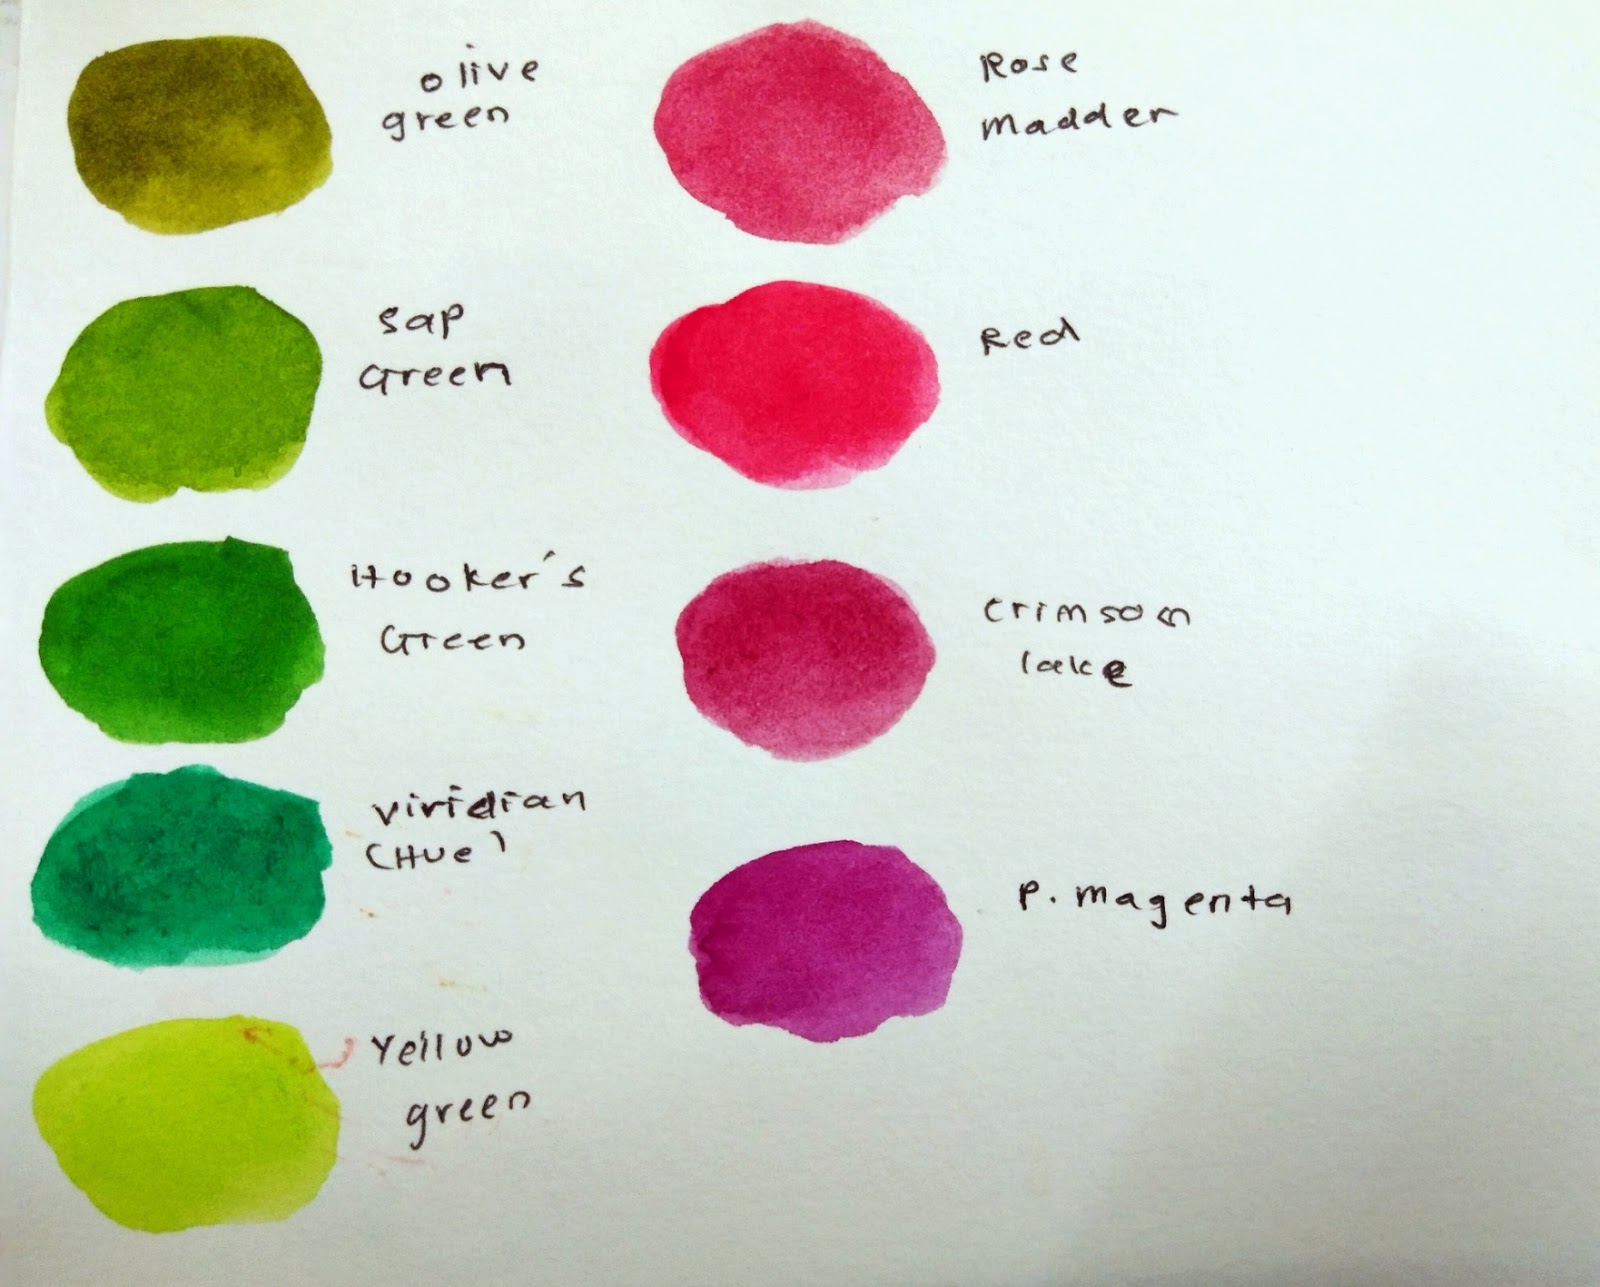 olive
green
sap
Green
Hooker's
Green
Viridian
(Hue)
Yellow
green
Rose
madder
Red
crimson
lake
P. magenta